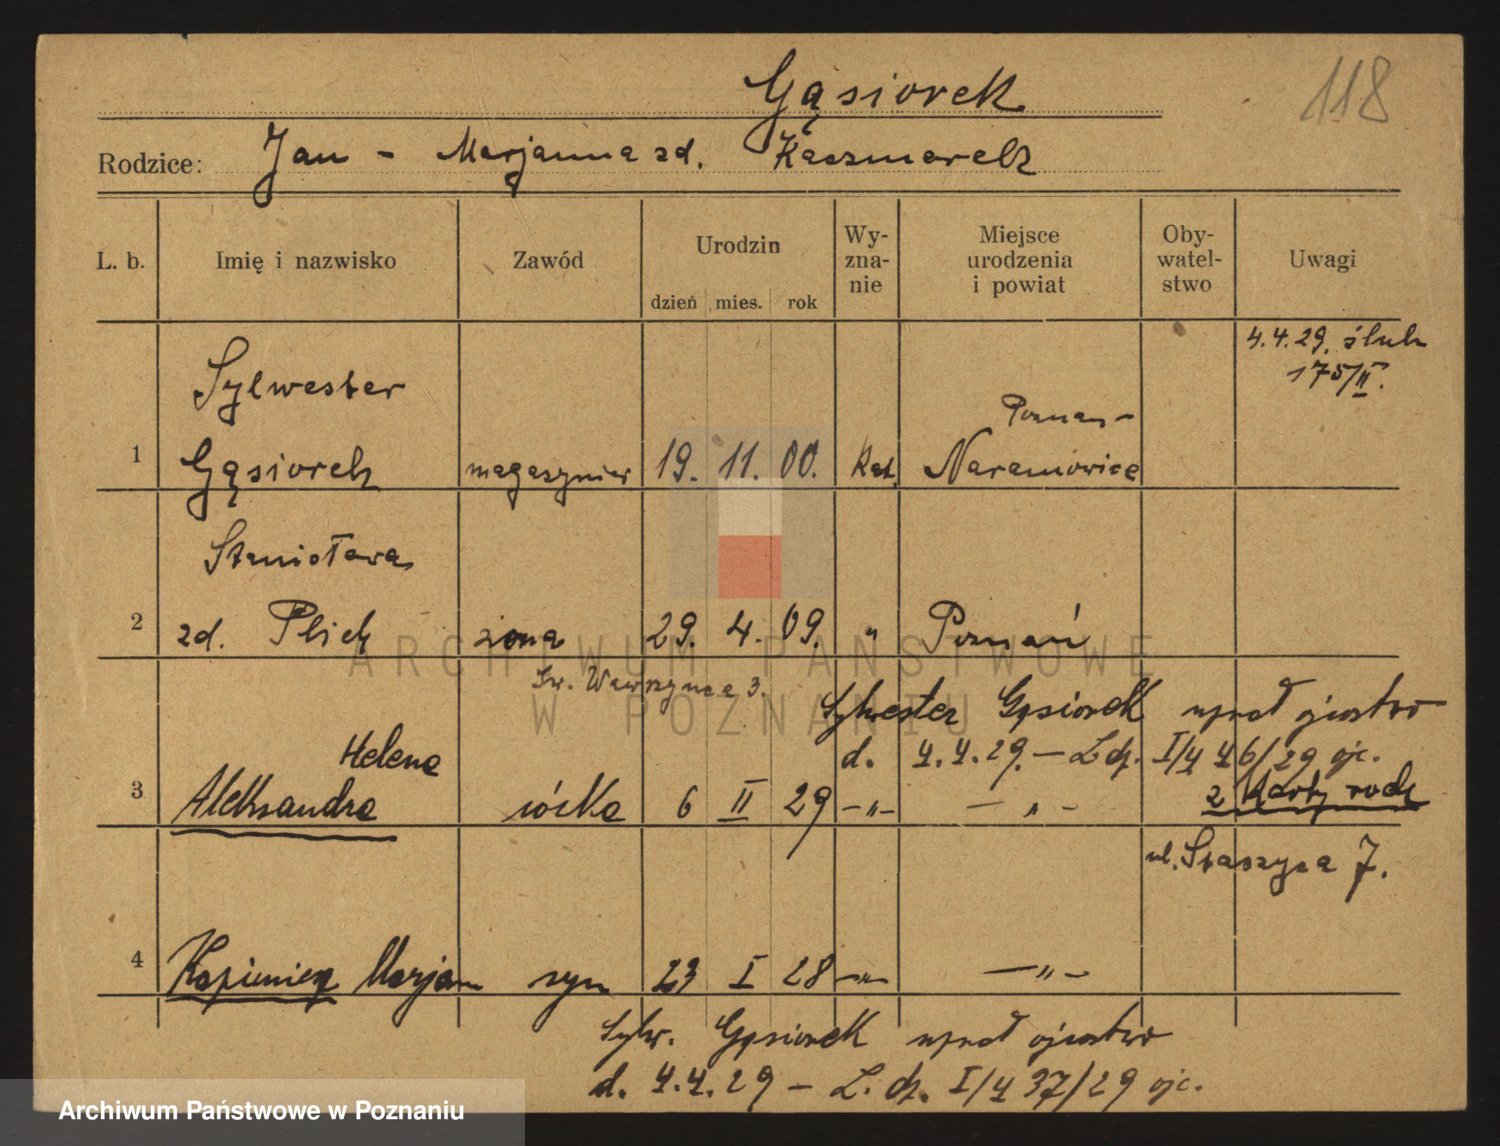 Gąsiorek
118
Rodzice: Jan - Marjanna zd. Kaczmarek
L. b. Imię i nazwisko Zawód Urodzin dzień mies. rok Wy-zna-nie Miejsce urodzenia i powiat Oby-watel-stwo Uwagi
4.4.29. ślub
175/II.
Sylwester
Poznań-
1 Gąsiorek magazynier 19. 11. 00. kat. Naramowice
Stanisława
2 zd. Plich żona 29. 4. 09. " Poznań
Św. Wawrzyńca 3.
Sylwester Gąsiorek uznał ojcostwo
d. 4.4.29. - L. dz. I/4 46/29 ojc.
Helena
2 Karty rodz
3 Aleksandra córka 6 II 29 -"- -"-
ul. Staszyca 7.
4 Kazimierz Marjan syn 23 I 28 -"- -"-
Sylw. Gąsiorek uznał ojcostwo
d. 4.4.29 - L. dz. I/4 37/29 ojc.
ARCHIWUM PAŃSTWOWE
W POZNANIU
Archiwum Państwowe w Poznaniu